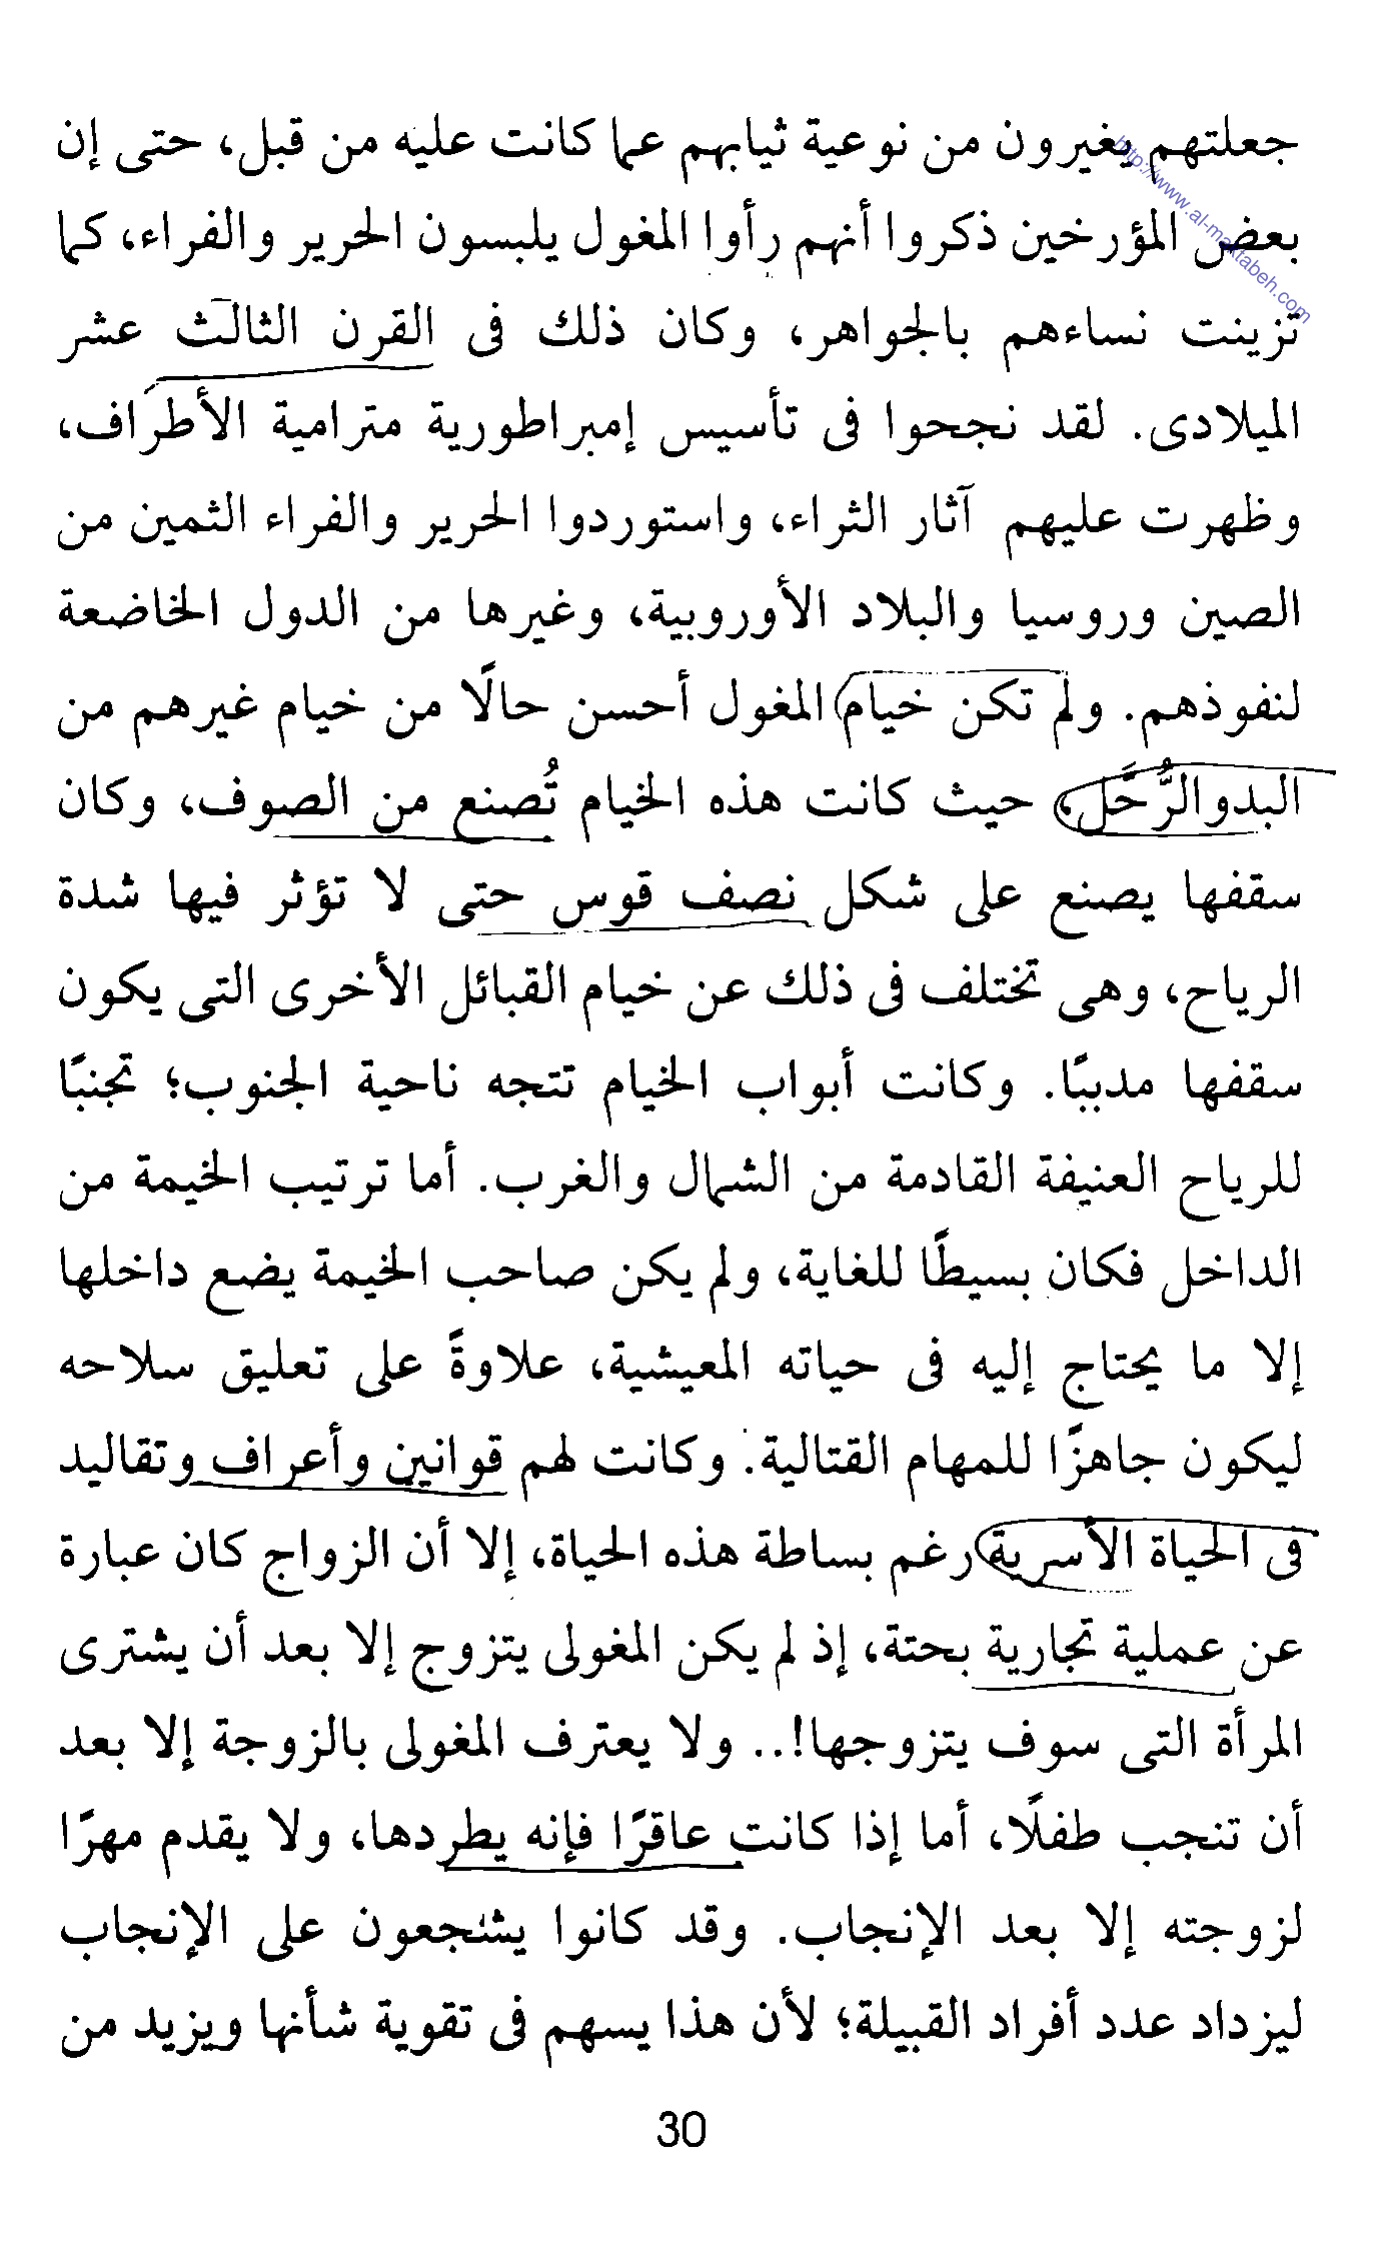 جعلتهم يغيرون من نوعية ثيابهم عما كانت عليه من قبل، حتى إن
بعض المؤرخين ذكروا أنهم رأوا المغول يلبسون الحرير والفراء، كما
تزينت نساءهم بالجواهر، وكان ذلك فى القرن الثالث عشر
الميلادى. لقد نجحوا فى تأسيس إمبراطورية مترامية الأطراف،
وظهرت عليهم آثار الثراء، واستوردوا الحرير والفراء الثمين من
الصين وروسيا والبلاد الأوروبية، وغيرها من الدول الخاضعة
لنفوذهم. ولم تكن خيام المغول أحسن حالًا من خيام غيرهم من
البدوالرُّحَّل، حيث كانت هذه الخيام تُصنع من الصوف، وكان
سقفها يصنع على شكل نصف قوس حتى لا تؤثر فيها شدة
الرياح، وهى تختلف فى ذلك عن خيام القبائل الأخرى التى يكون
سقفها مدببًا. وكانت أبواب الخيام تتجه ناحية الجنوب؛ تجنبًا
للرياح العنيفة القادمة من الشمال والغرب. أما ترتيب الخيمة من
الداخل فكان بسيطًا للغاية، ولم يكن صاحب الخيمة يضع داخلها
إلا ما يحتاج إليه فى حياته المعيشية، علاوةً على تعليق سلاحه
ليكون جاهزًا للمهام القتالية. وكانت لهم قوانين وأعراف وتقاليد
فى الحياة الأسرية رغم بساطة هذه الحياة، إلا أن الزواج كان عبارة
عن عملية تجارية بحتة، إذ لم يكن المغولى يتزوج إلا بعد أن يشترى
المرأة التى سوف يتزوجها!.. ولا يعترف المغولى بالزوجة إلا بعد
أن تنجب طفلًا، أما إذا كانت عاقرًا فإنه يطردها، ولا يقدم مهرًا
لزوجته إلا بعد الإنجاب. وقد كانوا يشجعون على الإنجاب
ليزداد عدد أفراد القبيلة؛ لأن هذا يسهم فى تقوية شأنها ويزيد من
30
http://www.al-maktabeh.com